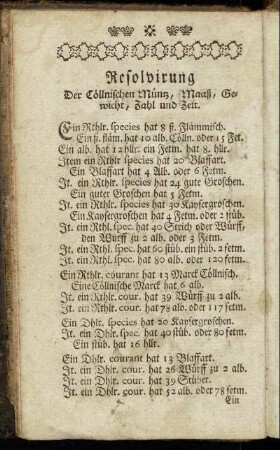 Resolvirung
Der Cöllnischen Müntz, Maaß, Ge-
wicht, Zahl und Zeit.
Ein Rthlr. species hat 8 ß. Flämmisch.
Ein ß. fläm. hat 10 alb. Cölln. oder 15 Fet.
Ein alb. hat 12 hllr. ein Fetm. hat 8. hllr.
Item ein Rthlr species hat 20 Blaffart.
Ein Blaffart hat 4 Alb. oder 6 Fetm.
It. ein Rthlr. species hat 24 gute Groschen.
Ein guter Groschen hat 5 Fetm.
It. ein Rthlr. species hat 30 Kaysergroschen.
Ein Kaysergroschen hat 4 Fetm. oder 2 stüb.
It. ein Rthl. spec. hat 40 Strich oder Würff,
den Würff zu 2 alb. oder 3 Fetm.
It. ein Rthl. spec. hat 60 stüb. ein stüb. 2 fetm.
It. ein Rthl. spec. hat 80 alb. oder 120 fetm.
Ein Rthlr. courant hat 13 Marck Cöllnisch.
Eine Cöllnische Marck hat 6 alb.
It. ein Rthlr. cour. hat 39 Würff zu 2 alb.
It. ein Rthlr. cour. hat 78 alb. oder 117 fetm.
Ein Dhlr. species hat 20 Kaysergroschen.
It. ein Dhl. spec. hat 40 stüb. oder 80 fetm.
Ein stüb. hat 16 hllr.
Ein Dhlr. courant hat 13 Blaffart.
It. ein Dhlr. cour. hat 26 Würff zu 2 alb.
It. ein Dhlr. cour. hat 39 Stüber.
It. ein Dhlr. cour. hat 52 alb. oder 78 fetm.
Ein